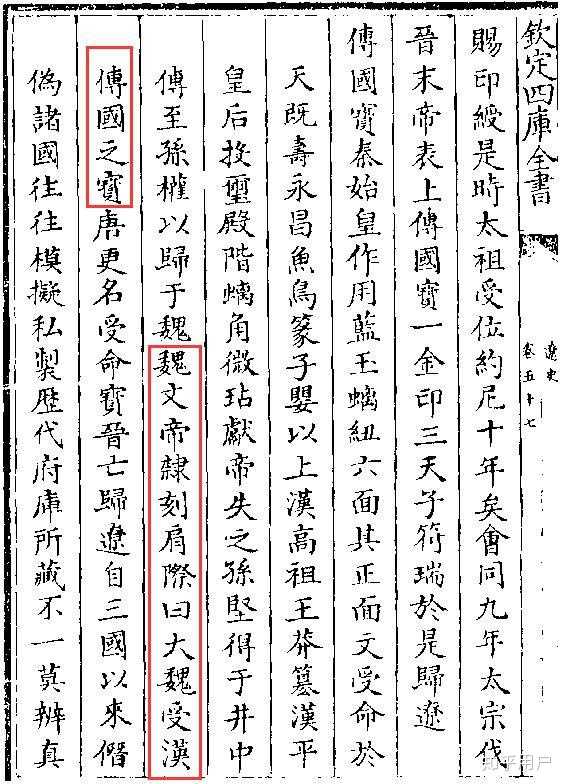 欽定四庫全書
遼史
卷五十七
賜印綬是時太祖受位約尼十年矣會同九年太宗伐
晉末帝表上傳國寶一金印三天子符瑞於是歸遼
傳國寶秦始皇作用藍玉螭紐六面其正面文受命於
天既壽永昌魚鳥篆子嬰以上漢高祖王莽篡漢平
皇后投璽殿階螭角微玷獻帝失之孫堅得于井中
傳至孫權以歸于魏魏文帝隸刻肩際曰大魏受漢
傳國之寶唐更名受命寶晉亡歸遼自三國以來僭
偽諸國往往模擬私製歴代府庫所藏不一莫辨真
知乎用户